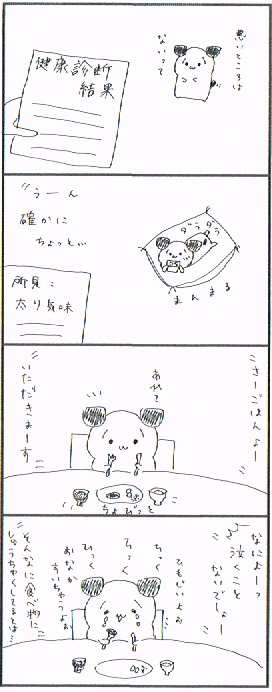 健康診断
結果
悪いところは
ないって
うーん
確かに
ちょっと…
所見：
太り気味
ダラダラ
まんまる
さーごはんよー
あれ？
…
いただきまーす
ちょびっと
なによーっ
泣くこと
ないでしょー
ひもじいよぉ
ひっく
ひっく
ひっく
おなか
すいちゃうよぉ
そんなに食べ物に
しゅうちゃくしてるとは…